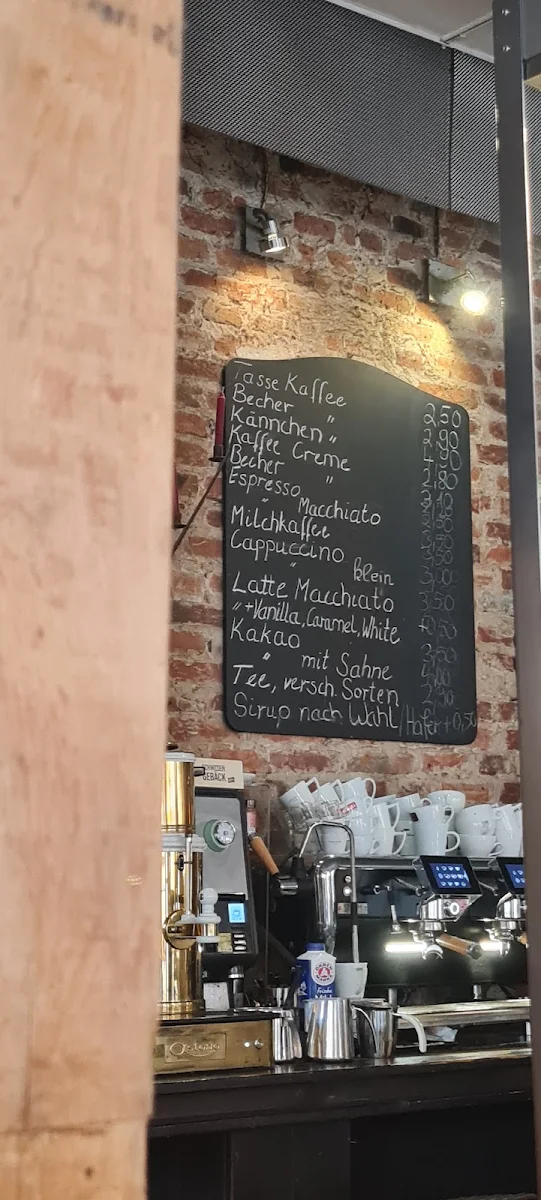 Tasse Kaffee 2,50
Becher " 2,90
Kännchen "
Kaffee Creme 2,80
Becher "
Espresso
" Macchiato
Milchkaffee
Cappuccino
" klein
Latte Macchiato 3,50
"+Vanilla, Caramel, White +0,50
Kakao
" mit Sahne
Tee, versch. Sorten
Sirup nach Wahl/Hafer +0,50
GEBÄCK